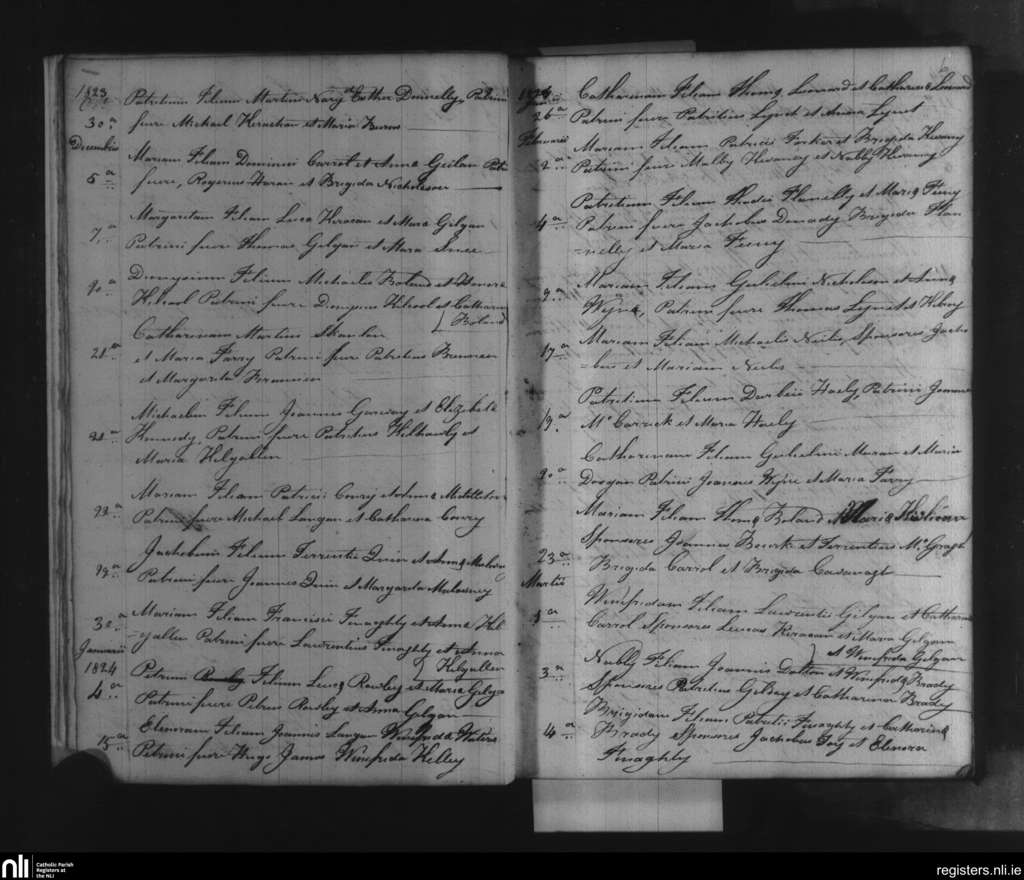 1823
Patritium Filium Martini Nary et Esther Donnelly, Patrini
30.a fuere Michael Kernachan et Maria Burns
Decembris
Mariam Filiam Dominici Carrol et Anna Geelan Patr
5.a fuere, Rogerius Haran et Brigida Nicholason
Margaritam Filiam Luca Kiracan et Mara Gilgan
7.a Patrini fuere Thomas Gilgan et Mara
20.a Dionysium Filium Michaelis Boland et Honora
Kilcool Patrini fuere Dionysius Kilcool et Catharina
Boland
Catharinam Martini Scanlin
21.a et Maria Farry Patrini fuere Patritius Brennan
et Margarita Brennan
Michaelem Filium Joannis Garvey et Elizabeth
21.a Kennedy, Patrini fuere Patritius Kilhawly et
Maria Kilgallen
Mariam Filiam Patricii Conry et Anna
22.a Patrini fuere Michael Langan et Catharina Conry
Jachobum Filium Terrentii Quin et Anna
29.a Patrini fuere Joannes Quin et Margarita Mulowney
30.a Mariam Filiam Francisci Finaghty et Anna Kil
=gallen Patrini fuere Laurentius Finaghty et Anna
Kilgallen
Januarii
1824 Petrum Filium Luca Rowley et Maria Gilgan
4.a Patrini fuere Petrus Rowley et Anna Gilgan
15.a Elenoram Filiam Joannis Langan Winifrida Waters
Patrini fuere Hugo James Winifrida Kelley
1824 Catharinam Filiam Thoma Leonard et Catharina Leonard
26.a Patrini fuere Patritius Lynch et Anna Lynch
Februarii
Mariam Filiam Patricii Forkin et Brigida
2.a Patrini fuere Malby et Nabby
Patritium Filium Thadei Flannelly et Maria Feeny
4.a Patrini fuere Jachobus Dunady Brigida Flan
=nelly et Maria Feeny
9.a Mariam Filiam Gulielmi Nicholson et Anna
Wyne, Patrini fuere Thomas Lynch et
17.a Mariam Filiam Michaelis Neilis, Sponsores Jacho
=bus et Mariam Neilis
Patritium Filium Darbii Haely, Patrini Joannes
19.a Mc Carrick et Maria Haely
Catharinam Filiam Gulielmi Moran et Maria
20.a Doogan Patrini Joannes Wyne et Maria Farry
Mariam Filiam Thoma Boland Maria
Sponsores Joannes Bourk et Terrentius Mc Gragh
23.a Brigida Carrol et Brigida Cavanagh
Martii
1.a Winifridam Filiam Laurentii Gilgan et Catharina
Carrol Sponsores Lucas Kiracan et Maria Gilgan
et Winifrida Gilgan
3.a Nabby Filiam Joannis Dalton et Winifrida Brady
Sponsores Patritius Gilbay et Catharina Brady
Brigidam Filiam Patritii Finaghty et Catharina
4.a Brady Sponsores Jachobus Foy et Elenora
Finaghty
nli Catholic Parish
Registers at
the NLI
registers.nli.ie